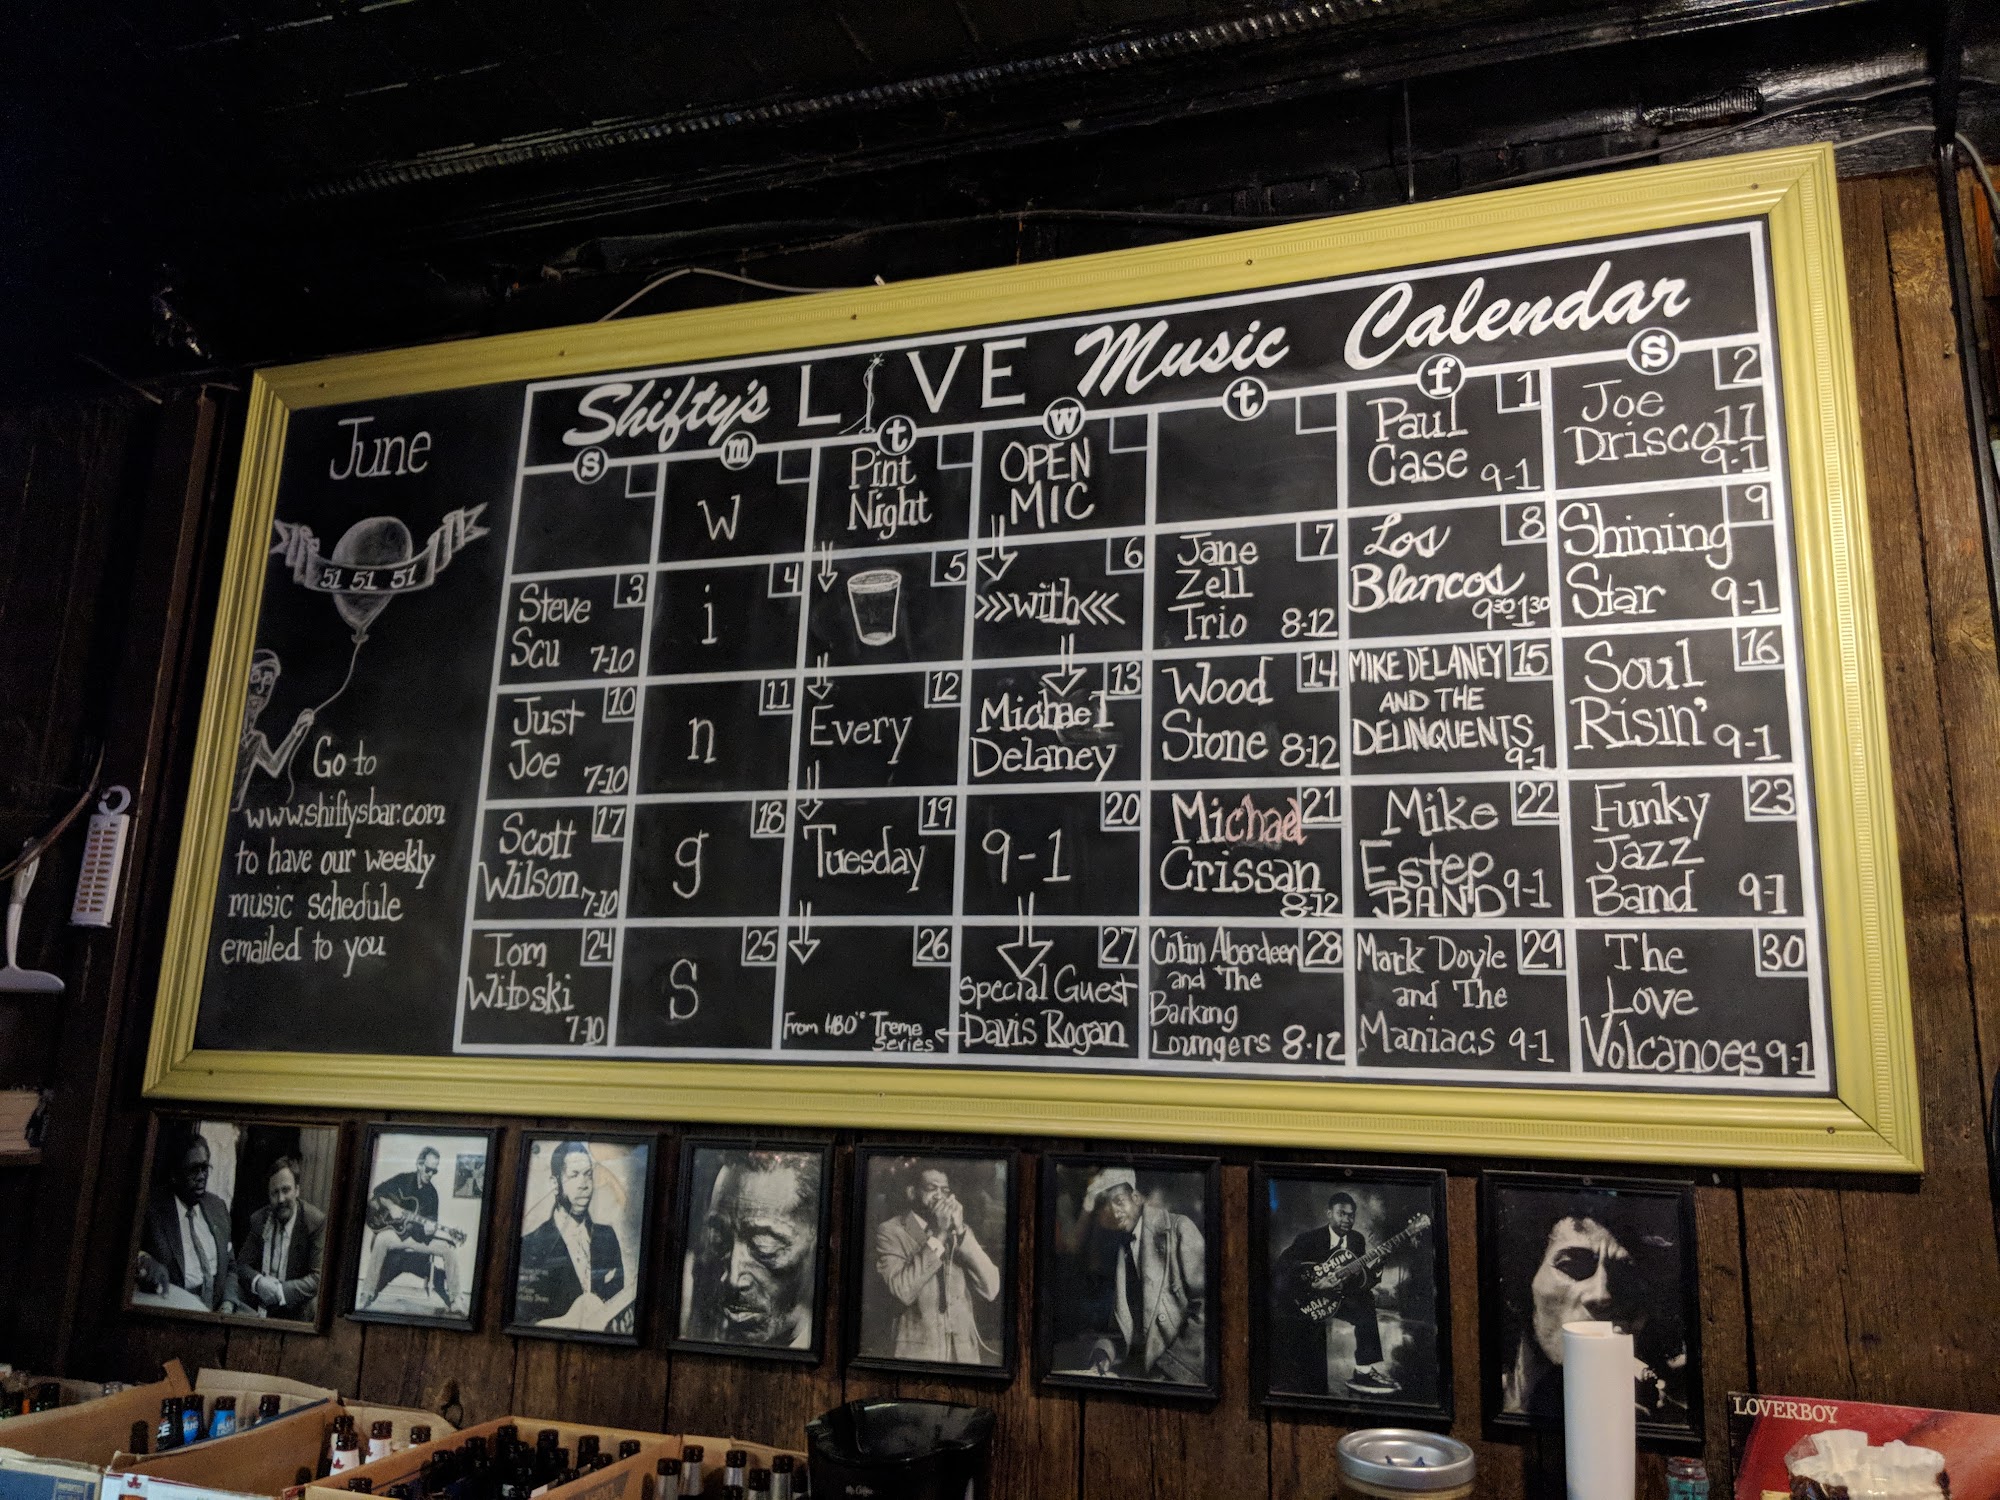 Shifty's LIVE Music Calendar
June
51 51 51
Go to
www.shiftysbar.com
to have our weekly
music schedule
emailed to you
s m t w t f s
w
Pint
Night
OPEN
MIC
1
Paul
Case
9-1
2
Joe
Driscoll
9-1
3
Steve
Scu 7-10
4
i
5
6
>>>with<<<
7
Jane
Zell
Trio 8-12
8
Los
Blancos
9:30-1:30
9
Shining
Star 9-1
10
Just
Joe 7-10
11
n
12
Every
13
Michael
Delaney
14
Wood
Stone 8-12
15
MIKE DELANEY
AND THE
DELINQUENTS
9-1
16
Soul
Risin' 9-1
17
Scott
Wilson 7-10
18
g
19
Tuesday
20
9-1
21
Michael
Crissan
8-12
22
Mike
Estep
BAND 9-1
23
Funky
Jazz
Band 9-1
24
Tom
Witoski
7-10
25
s
26
From HBO's Treme
Series
27
Special Guest
Davis Rogan
28
Colin Aberdeen
and The
Barking
Loungers 8-12
29
Mark Doyle
and The
Maniacs 9-1
30
The
Love
Volcanoes 9-1
B-B-KING
LOVERBOY